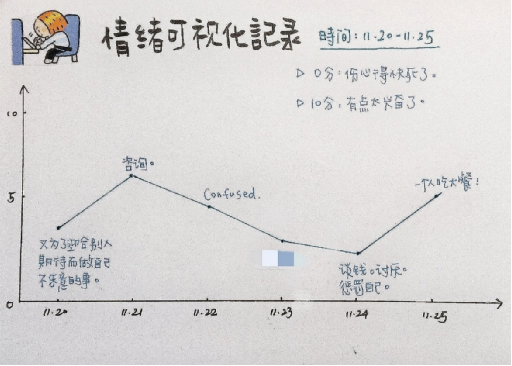 情绪可视化記录
時间：11.20-11.25
▷ 0分：伤心得快死了。
▷ 10分：有点太兴奋了。
10
咨询。
Confused.
一个人吃大餐！
5
又为了迎合别人
期待而做自己
不乐意的事。
谈钱。讨厌。
惩罚自己。
0
11.20
11.21
11.22
11.23
11.24
11.25